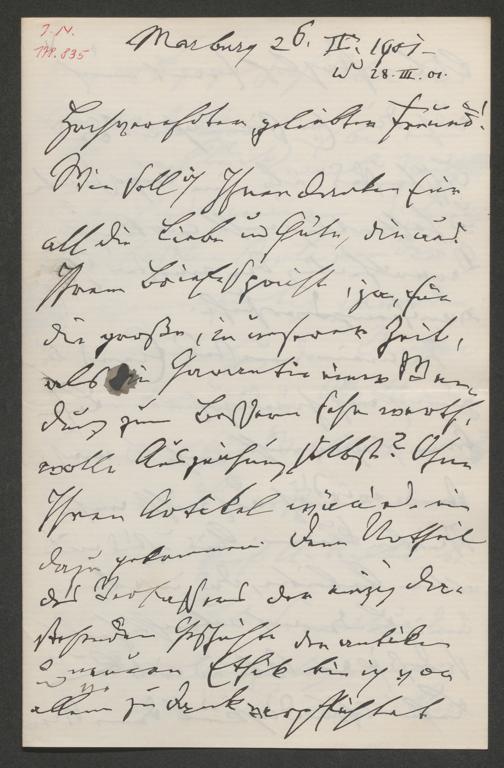 I.N.
178.835
Marburg 26. III. 1901
28. III. 01.
Hochverehrter, geliebter Freund!
Wie soll ich Ihnen danken für
all die Liebe u Güte, die aus
Ihrem Briefe spricht, ja, für
die große, in unserer Zeit,
als ein Garantie einer Wen-
dung zum Bessern sehr werth-
volle Auszeichnung selbst? Ohne
Ihren Artikel würde nie
dazu gekommen. Dem Urtheil
des Verfassers der einzig da-
stehenden Geschichte der antiken
u neueren Ethik bin ich vor
allem zu Dank verpflichtet